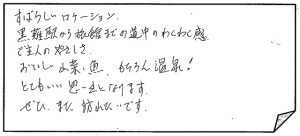 すばらしいロケーション.
黒薙駅から旅館までの道中のわくわく感
ご主人のやさしさ.
おいしい山菜、魚、もちろん温泉!
とてもいい思い出となります.
ぜひ、また、訪れたいです。